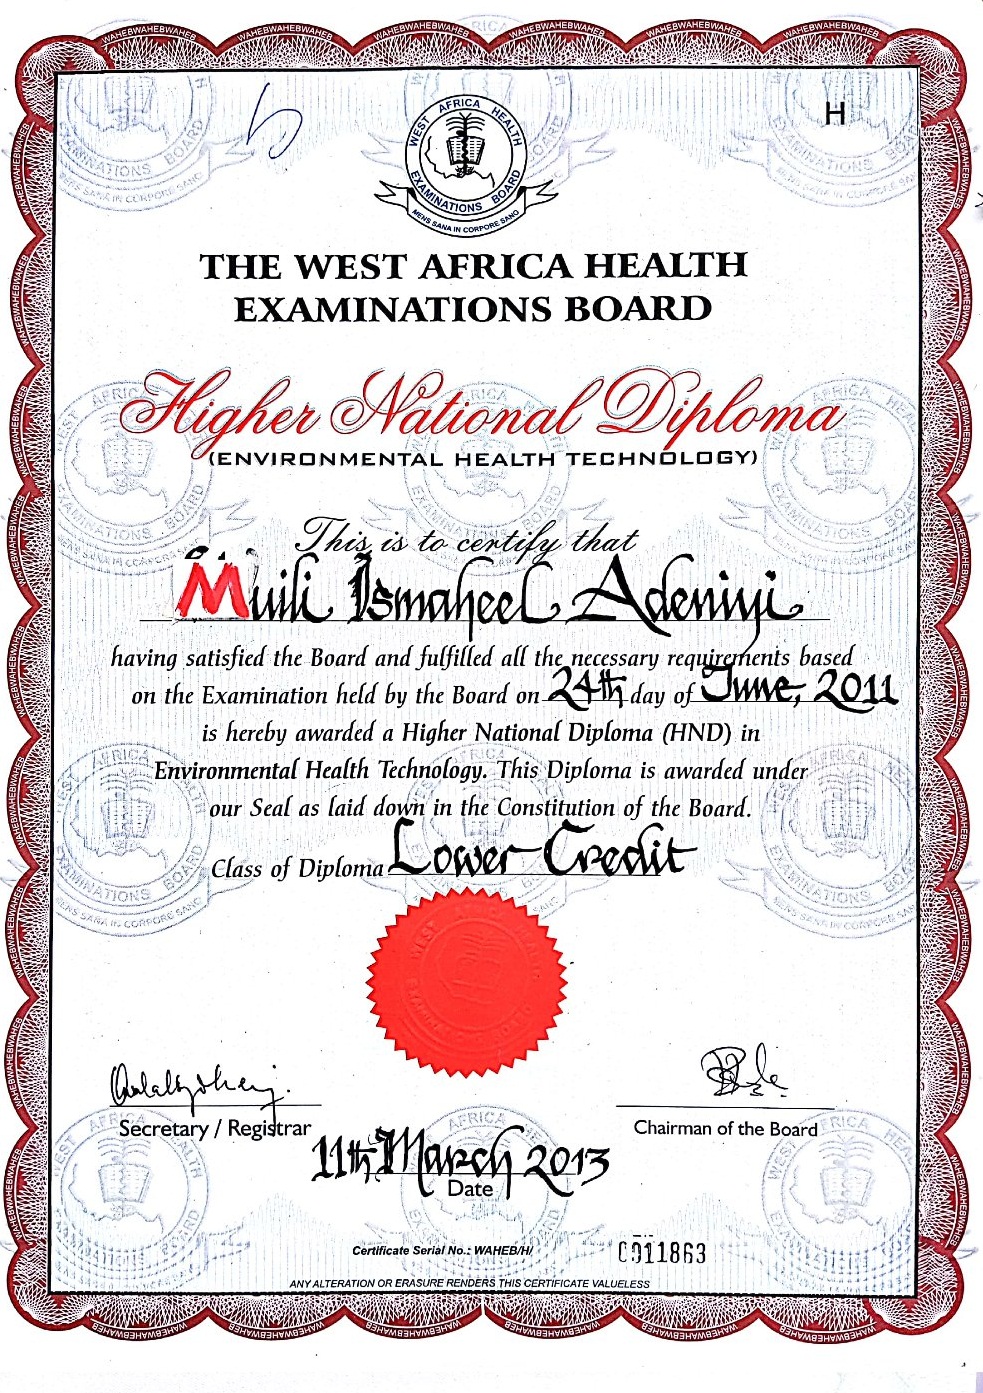 H
WEST AFRICA HEALTH
EXAMINATIONS BOARD
MENS SANA IN CORPORE SANO
THE WEST AFRICA HEALTH
EXAMINATIONS BOARD
Higher National Diploma
(ENVIRONMENTAL HEALTH TECHNOLOGY)
This is to certify that
Muili Ismaheel Adeniyi
having satisfied the Board and fulfilled all the necessary requirements based
on the Examination held by the Board on 24th day of June, 2011
is hereby awarded a Higher National Diploma (HND) in
Environmental Health Technology. This Diploma is awarded under
our Seal as laid down in the Constitution of the Board.
Class of Diploma Lower Credit
Secretary / Registrar
Chairman of the Board
11th March 2013
Date
Certificate Serial No.: WAHEB/H/ 0011863
ANY ALTERATION OR ERASURE RENDERS THIS CERTIFICATE VALUELESS